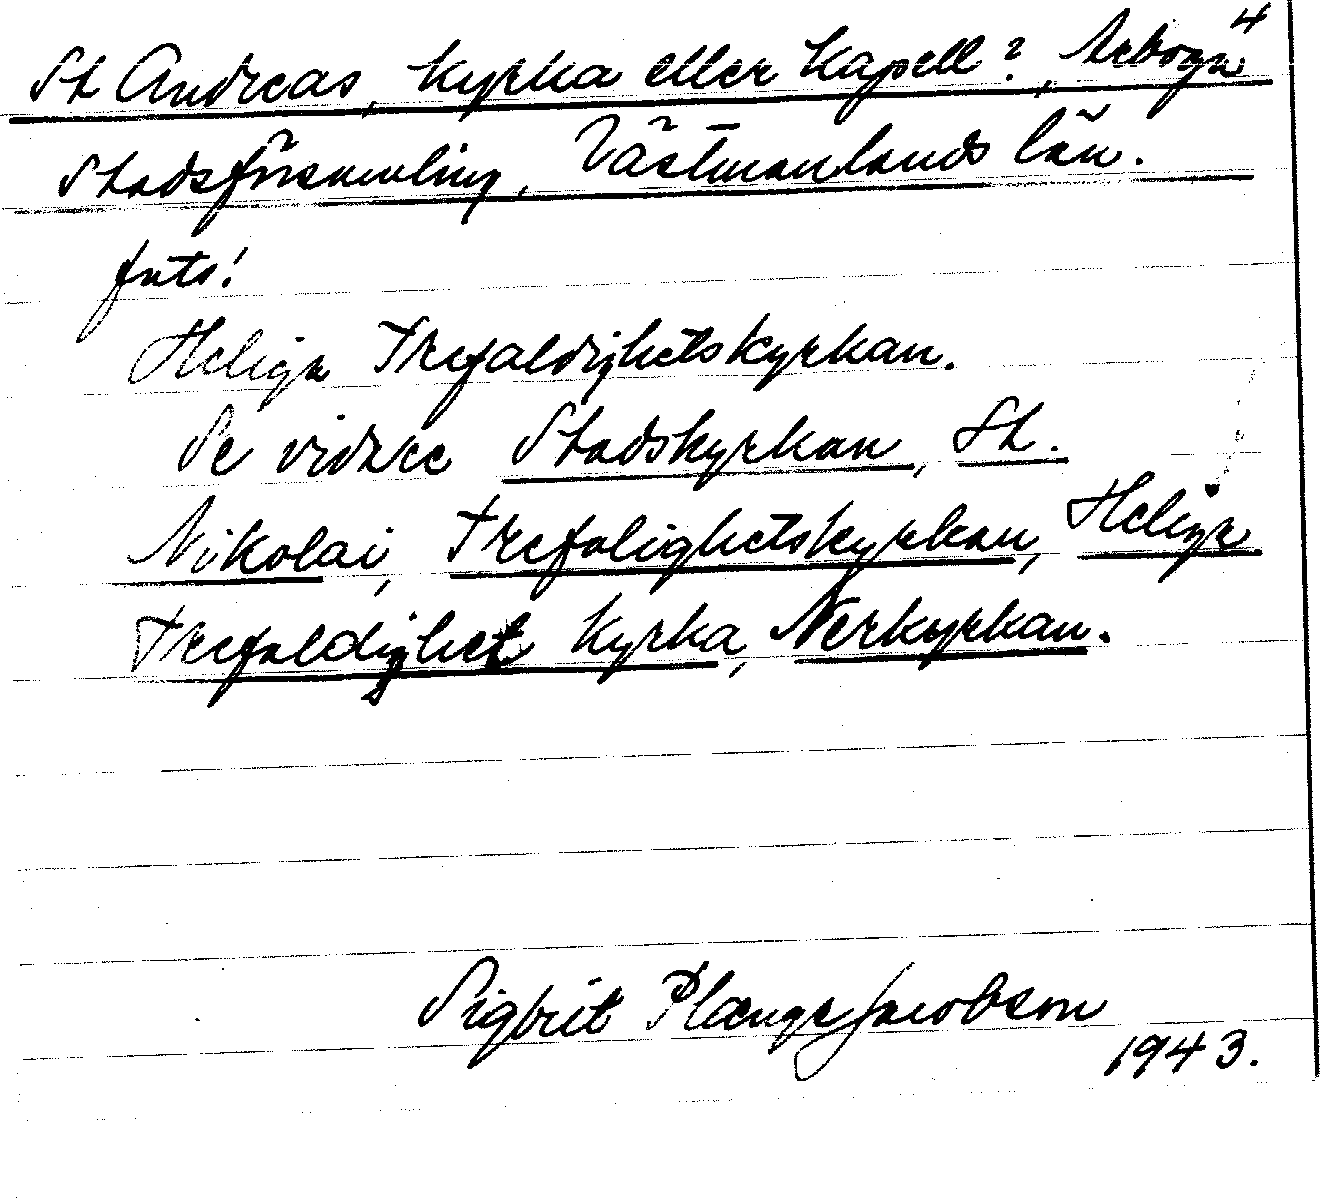 4
St Andreas, kyrka eller kapell?, Arboga
Stadsförsamling, Västmanlands län.
forts!
Heliga Trefaldighetskyrkan.
Se vidare Stadskyrkan, St.
Nikolai, Trefalighetskyrkan, Heliga
Trefaldighet kyrka, Nerkyrkan.
Sigbrit Plænge Jacobson
1943.